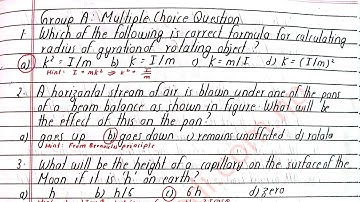 Group A: Multiple Choice Question
1. Which of the following is correct formula for calculating
radius of gyration of rotating object?
a) k² = I/m b) k = I/m c) k = m/I d) k = (I/m)²
Hint: I = mk² ⇒ k² = I/m
2. A horizontal stream of air is blown under one of the pans
of a beam balance as shown in figure. What will be
the effect of this on the pan?
a) goes up b) goes down c) remains unaffected d) rotate
Hint: From Bernoulli principle
3. What will be the height of a capillary on the surface of the
Moon if it is 'h' on earth?
a) h b) h/6 c) 6h d) zero